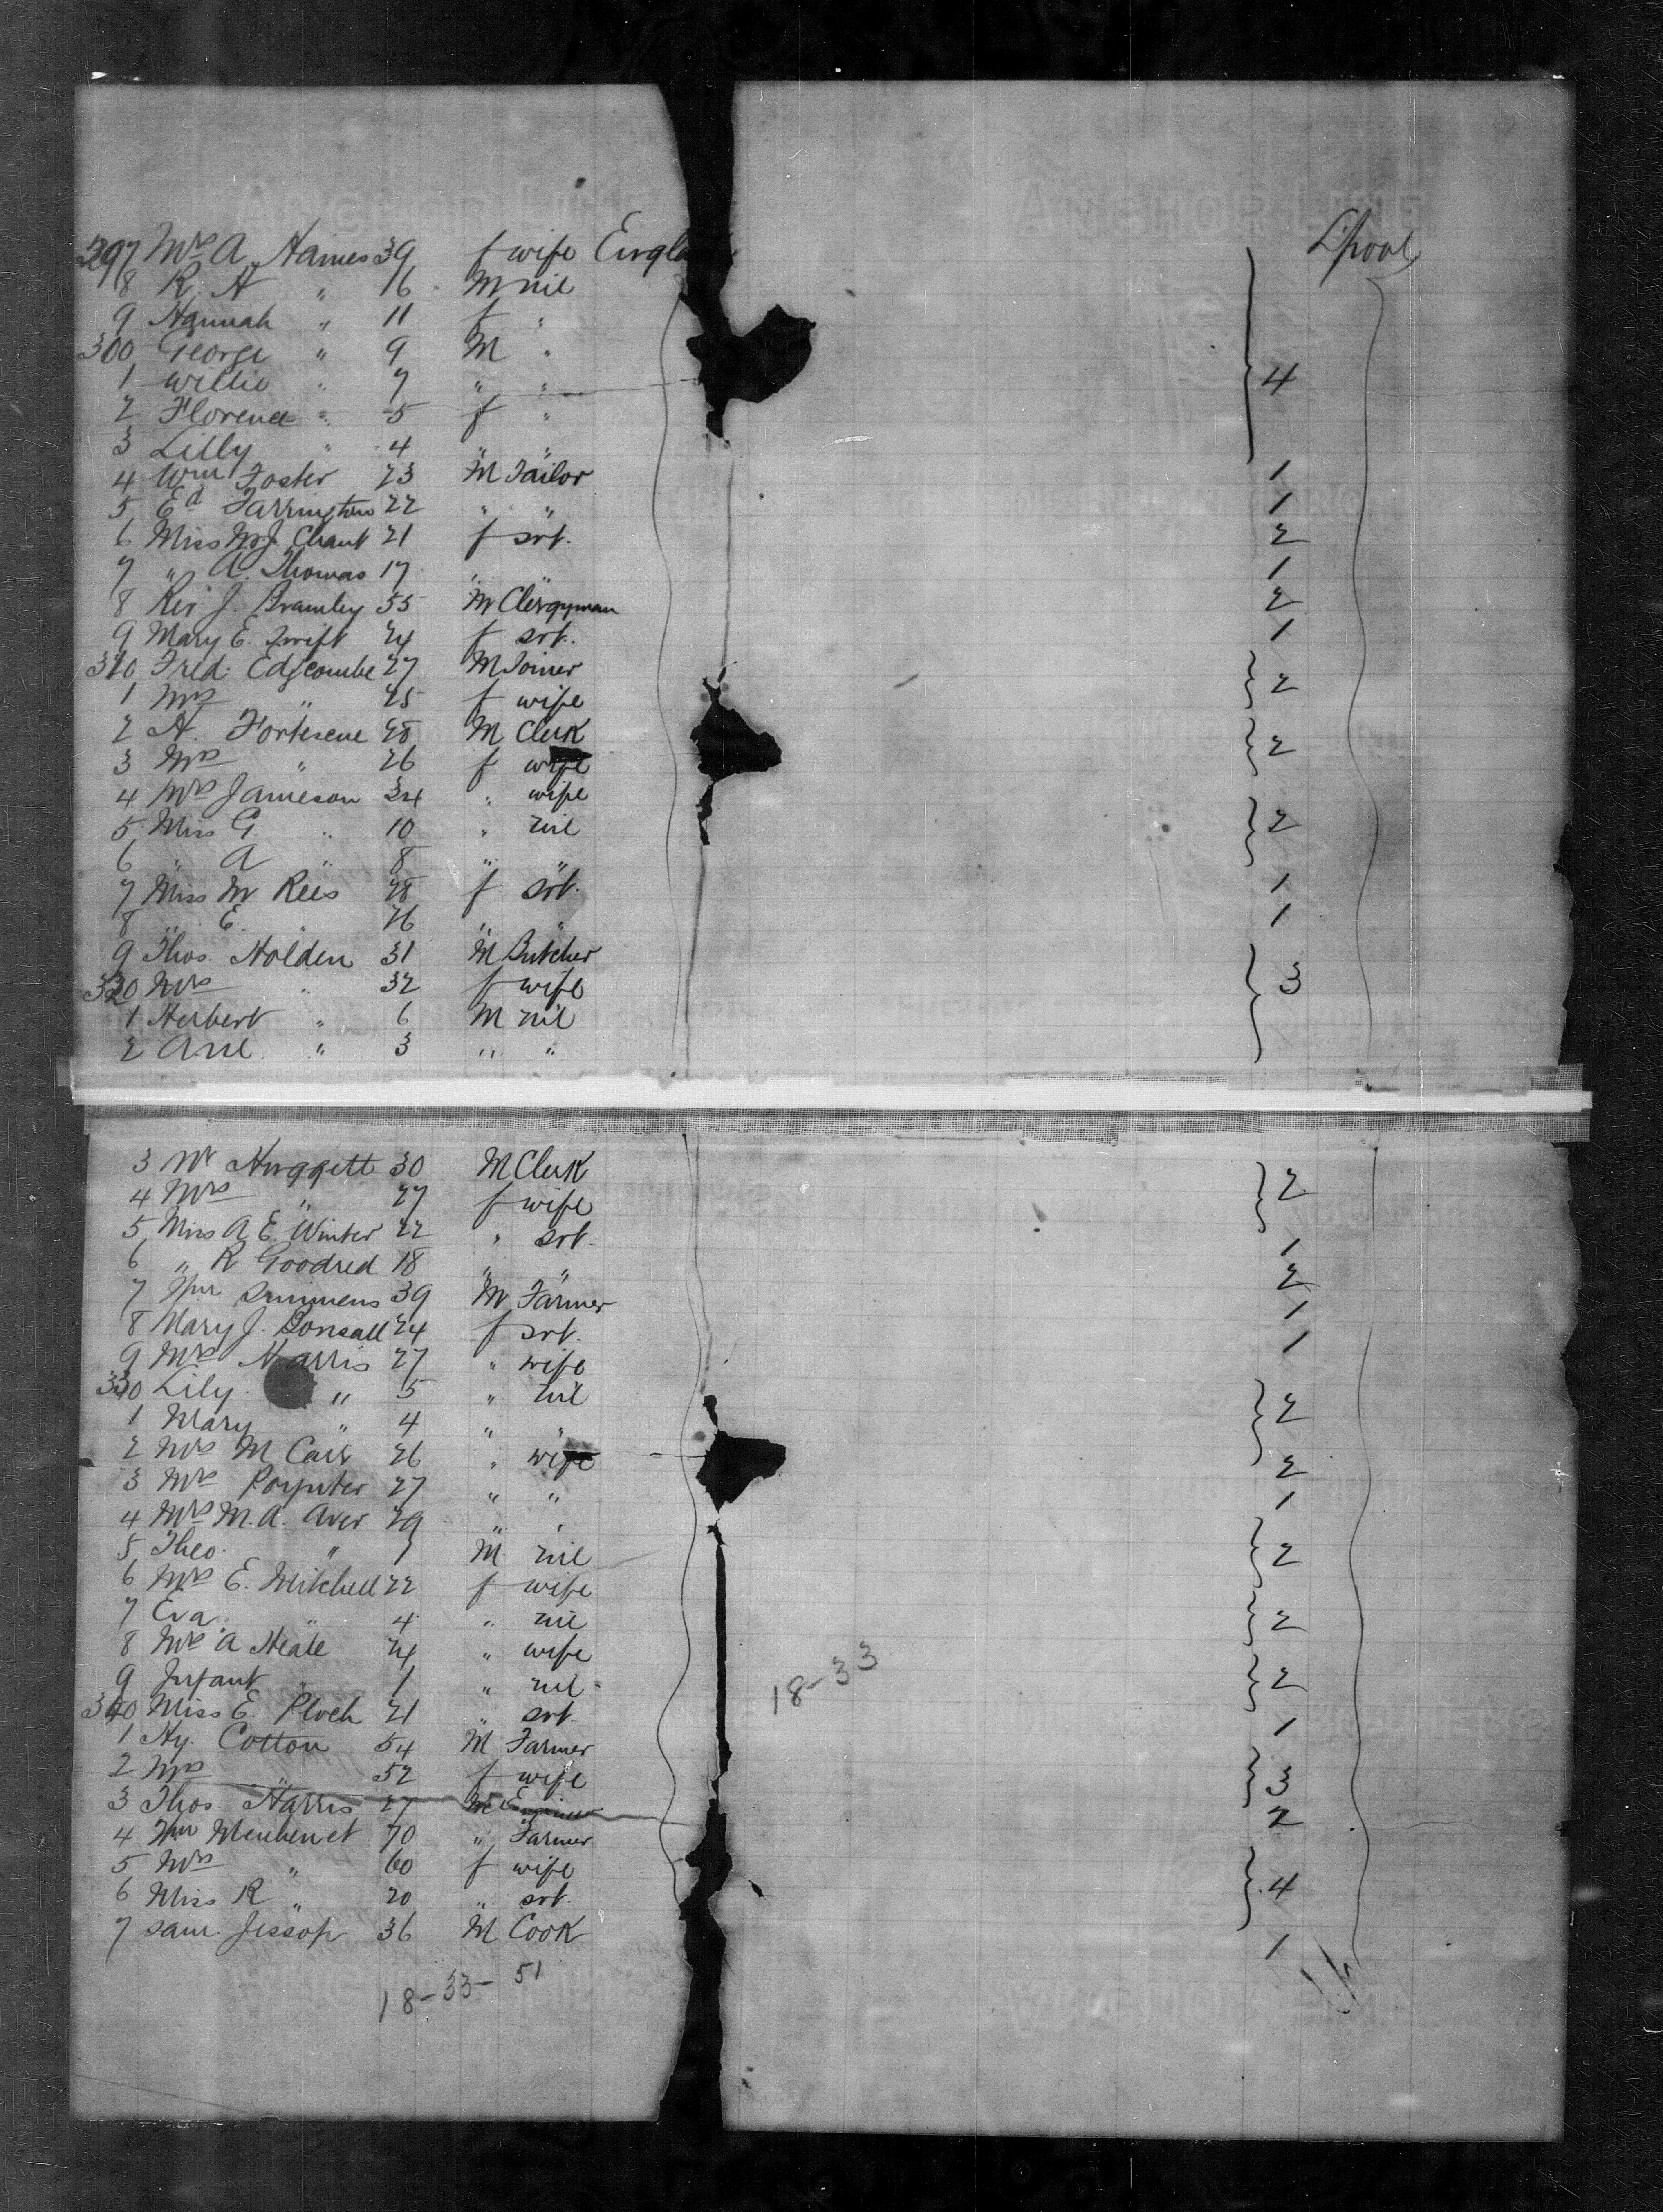 297 Mrs A. Haines 39 f wife England L'pool
8 R. H " 16 M nil
9 Hannah " 11 f "
300 George " 9 M "
1 Willie " 7 " " 4
2 Florence " 5 f "
3 Lilly " 4 " "
4 Wm Foster 23 M Tailor 1
5 Ed Farrington 22 " " 1
6 Miss M.J. Chant 21 f srt. 2
7 " A. Thomas 17 " " 1
8 Rev J. Bramley 55 M Clergyman 2
9 Mary E. Swift 24 f srt. 1
310 Fred. Edgcombe 27 M Joiner 2
1 Mrs " 25 f wife
2 H. Fortescue 28 M Clerk 2
3 Mrs " 26 f wife
4 Mrs Jameson 34 " wife
5 Miss G. " 10 " nil 2
6 " A " 8 " "
7 Miss M Rees 28 f srt. 1
8 " E. " 26 " " 1
9 Thos. Holden 31 M Butcher
320 Mrs " 32 f wife 3
1 Herbert " 6 M nil
2 " 3 " "
3 Huggett 30 M Clerk 2
4 Mrs " 27 f wife
5 Miss A.E. Winter 22 " srt. 1
6 " R Goodred 18 " " 2
7 Simmens 39 M Farmer 1
8 Mary J. Bonsall 24 f srt. 1
9 Mrs Harris 27 " wife
330 Lily " 5 " nil 2
1 Mary " 4 " "
2 Mrs M Carr 26 " wife 2
3 Mrs Poynter 27 " " 1
4 Mrs M.A. Aver 29 " "
5 Theo. " 1 M nil 2
6 Mrs E. Mitchell 22 f wife
7 Eva " 4 " nil 2
8 Mrs A Heale 24 " wife
9 Infant " 1 " nil 2
18-33
340 Miss E. Ploch 21 " srt. 1
1 Hy. Cotton 54 M Farmer
2 Mrs " 52 f wife 3
3 Thos. Harris 27 M Engineer 2
4 Wm 70 " Farmer
5 Mrs " 60 f wife
6 Miss R " 20 " srt. 4
7 Saml. Jessop 36 M Cook 1
18-33-51